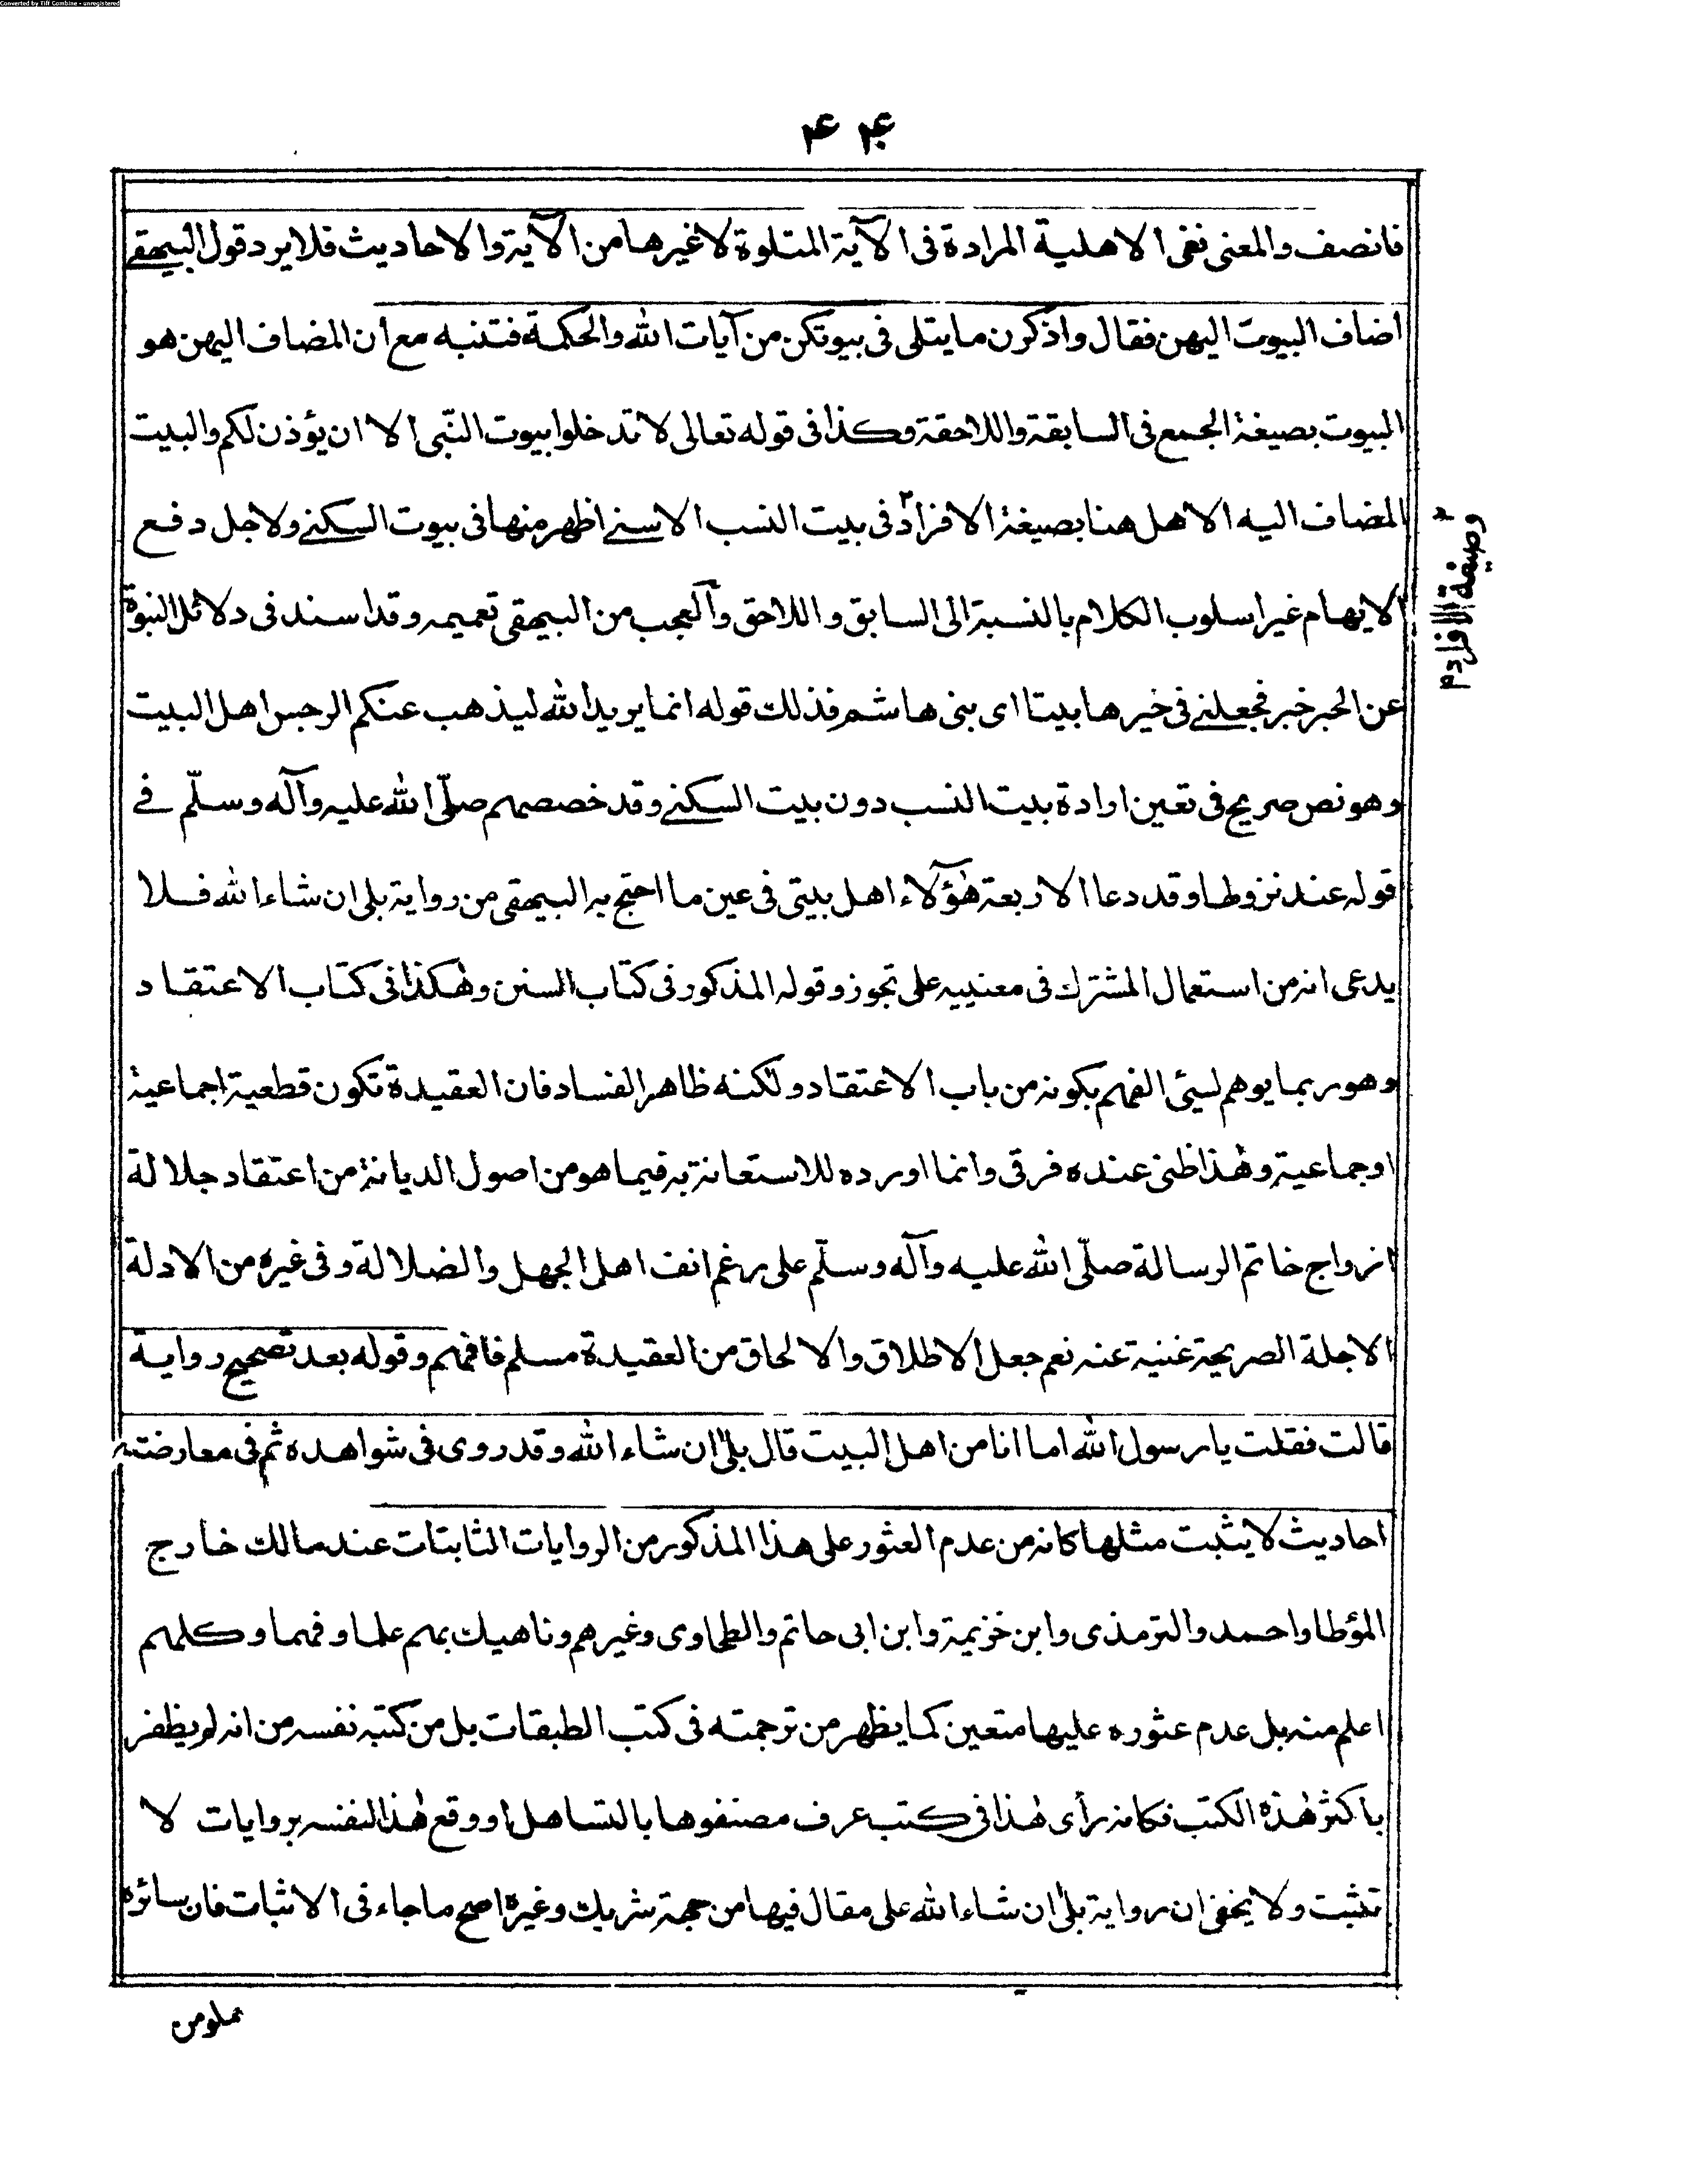 Converted by Tiff Combine - unregistered
۴۴
فانصف والمعنى نفى الاهلية المرادة فى الآية المتلوة لا غيرها من الآية والاحاديث فلا يرد قول البيهقى
اضاف البيوت اليهن فقال واذكرن ما يتلى فى بيوتكن من آيات الله والحكمة فتنبه مع أن المضاف اليهن هو
البيوت بصيغة الجمع فى السابقة واللاحقة وكذا فى قوله تعالى لا تدخلوا بيوت النّبى الا ان يؤذن لكم والبيت
المضاف اليه الاهل هنا بصيغة الافراد۲ فى بيت النسب الاسنے اظهر منها فى بيوت السكنے ولاجل دفع
الايهام غير اسلوب الكلام بالنسبة الى السابق واللاحق وآلعجب من البيهقى تعميمه وقد اسند فى دلائل النبوة
عن الحبر خبر فجعلنے فى خيرها بيتا اى بنى هاشم فذلك قوله انما يريد الله ليذهب عنكم الرجس اهل البيت
وهو نص صريح فى تعين ارادة بيت النسب دون بيت السكنے وقد خصصهم صلّى الله عليه وآله وسلّم فے
قوله عند نزولها وقد دعا الاربعة هٰؤلآء اهل بيتى فى عين ما احتج به البيهقى من رواية بلى ان شاء الله فلا
يدعى انه من استعمال المشترك فى معنييه على تجوز وقوله المذكور فى كتاب السنن وهٰكذا فى كتاب الاعتقاد
وهو ربما يوهم لسيئ الفهم بكونه من باب الاعتقاد ولٰكنه ظاهر الفساد فان العقيدة تكون قطعية اجماعية
او جماعية وهٰذا ظنى عنده فرقى وانما اورده للاستعانة به فيما هو من اصول الديانة من اعتقاد جلالة
ازواج خاتم الرسالة صلّى الله عليه وآله وسلّم على رغم انف اهل الجهل والضلالة وفى غيره من الادلة
الاجلة الصريحة غنية عنه نعم جعل الاطلاق والالحاق من العقيدة مسلم فافهم وقوله بعد تصحيح رواية
قالت فقلت يا رسول الله اما انا من اهل البيت قال بلىٰ ان شاء الله وقد روى فى شواهده ثم فى معارضته
احاديث لا يثبت مثلها كانه من عدم العثور على هذا المذكور من الروايات الثابتات عند مالك خارج
المؤطا واحمد والترمذى وابن خزيمة وابن ابى حاتم والطحاوى وغيرهم وناهيك بهم علما وفهما وكلهم
اعلم منه بل عدم عثوره عليها متعين كما يظهر من ترجمته فى كتب الطبقات بل من كتبه نفسه من انه لم يظفر
باكثر هٰذه الكتب فكانه رأى هٰذا فى كتب عرف مصنفوها بالتساهل او وقع هٰذا لنفسه بروايات لا
تثبت ولا يخفى ان رواية بلىٰ ان شاء الله على مقال فيها من جهة شريك وغيره اصح ما جاء فى الاثبات فان سائره
وصيغة الافراد
مملو من